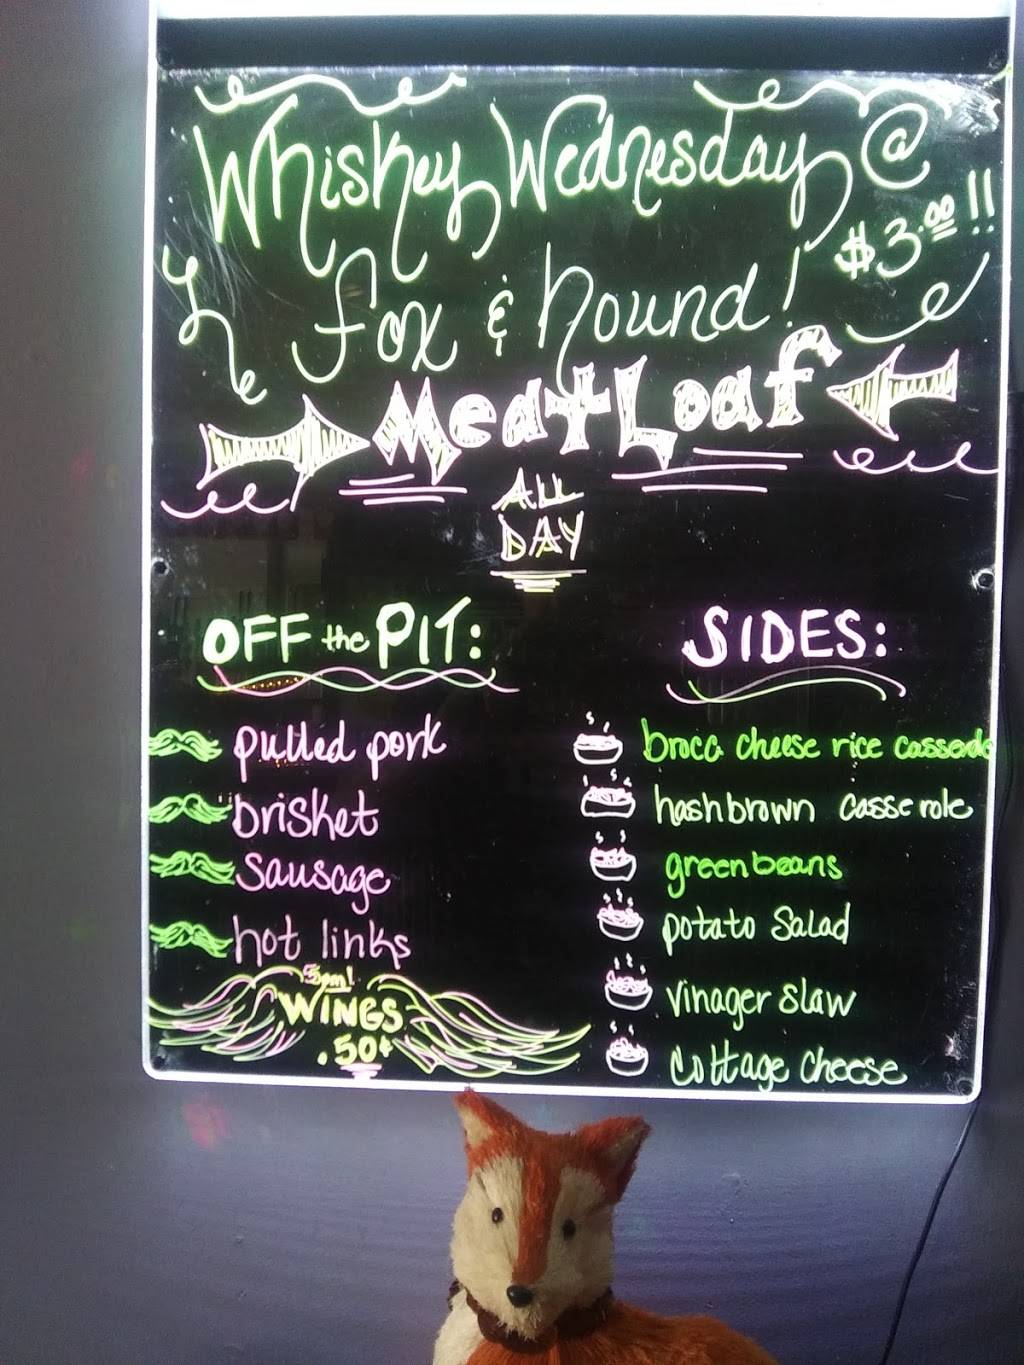 Whiskey Wednesday @
$3.00!!
Fox & hound!
MeatLoaf
ALL
DAY
OFF the PIT:
pulled pork
brisket
sausage
hot links
5pm!
WINGS
.50¢
SIDES:
brocc cheese rice casserole
hashbrown casserole
greenbeans
potato Salad
vinager slaw
cottage cheese